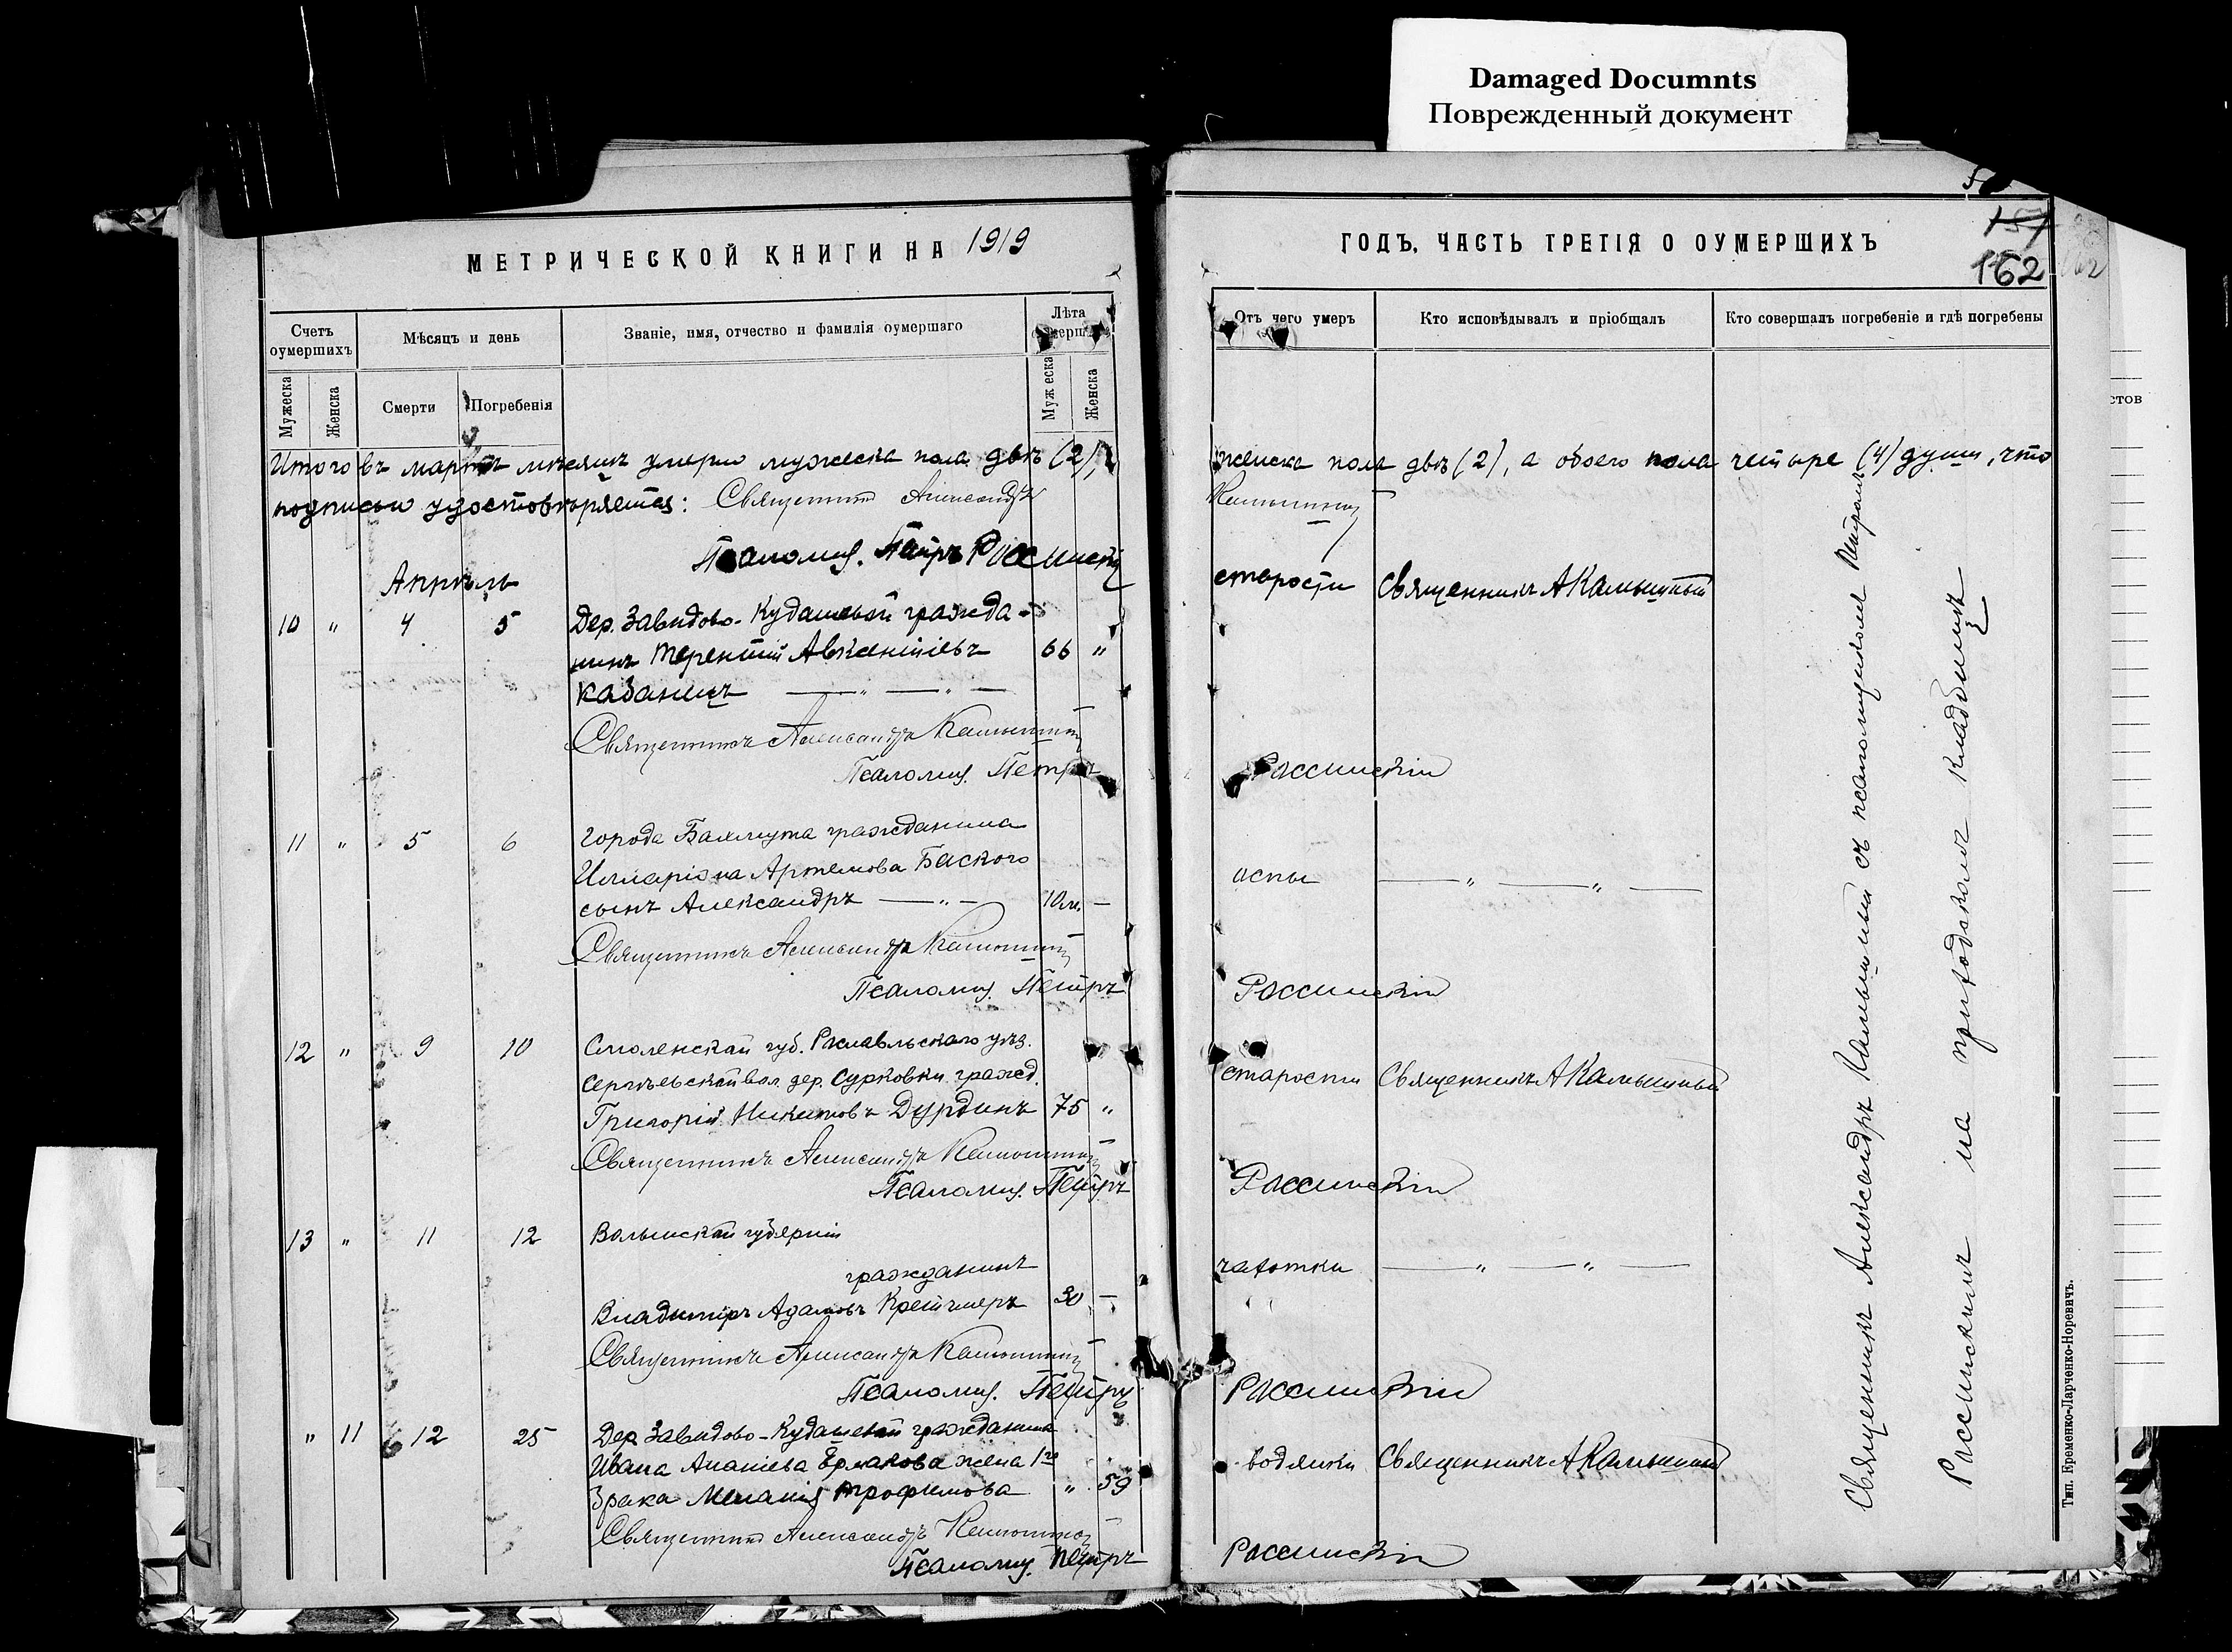 Damaged Documnts
Поврежденный документ
МЕТРИЧЕСКОЙ КНИГИ НА 1919
ГОДЪ, ЧАСТЬ ТРЕТІЯ О ОУМЕРШИХЪ
157
162
Счетъ оумершихъ
Мѣсяцъ и день
Званіе, имя, отчество и фамилія оумершаго
Лѣта
Отъ чего умеръ
Кто исповѣдывалъ и пріобщалъ
Кто совершалъ погребеніе и гдѣ погребены
Мужеска
Женска
Смерти
Погребенія
Муж еска
Женска
Итого въ мартѣ мѣсяцѣ умерло мужеска пола двѣ (2),
женска пола двѣ (2), а обоего пола четыре (4) души, что
подписью удостовѣряется: Священникъ Александръ
Камышный
Псаломщ. Петръ Россинскій
Апрѣль
10 " 4 5 Дер. Завидово-Кудашевой гражда-
нинъ Терентій Авксентіевъ 66 "
Кабанецъ
старости Священникъ А Камышный
Священникъ Александръ Камышный
Псаломщ. Петръ Россинскій
11 " 5 6 города Бахмута гражданина
Илларіона Артемова Баского
сынъ Александръ 10 м. —
оспы — " — " —
Священникъ Александръ Камышный
Псаломщ. Петръ Россинскій
12 " 9 10 Смоленской губ. Рославльскаго уѣз.
Сергѣевской вол. дер. Сурковки гражд.
Григорій Никитовъ Дурдинъ 75 "
старости Священникъ А Камышный
Священникъ Александръ Камышный
Псаломщ. Петръ Россинскій
13 " 11 12 Волынской губерніи
гражданинъ
Владиміръ Адамовъ Крейчмеръ 30 —
чахотки — " — " —
Священникъ Александръ Камышный
Псаломщ. Петръ Россинскій
" 11 12 25 Дер. Завидово-Кудашевой гражданина
Ивана Ананіева Ермакова жена 1го
брака Меланія Трофимова " 59
водянки Священникъ А Камышный
Священникъ Александръ Камышный
Псаломщ. Петръ Россинскій
Священникъ Александръ Камышный съ псаломщикомъ Петромъ
Россинскимъ на приходскомъ кладбищѣ
Тип. Еременко-Ларченко-Норевичъ.
стов